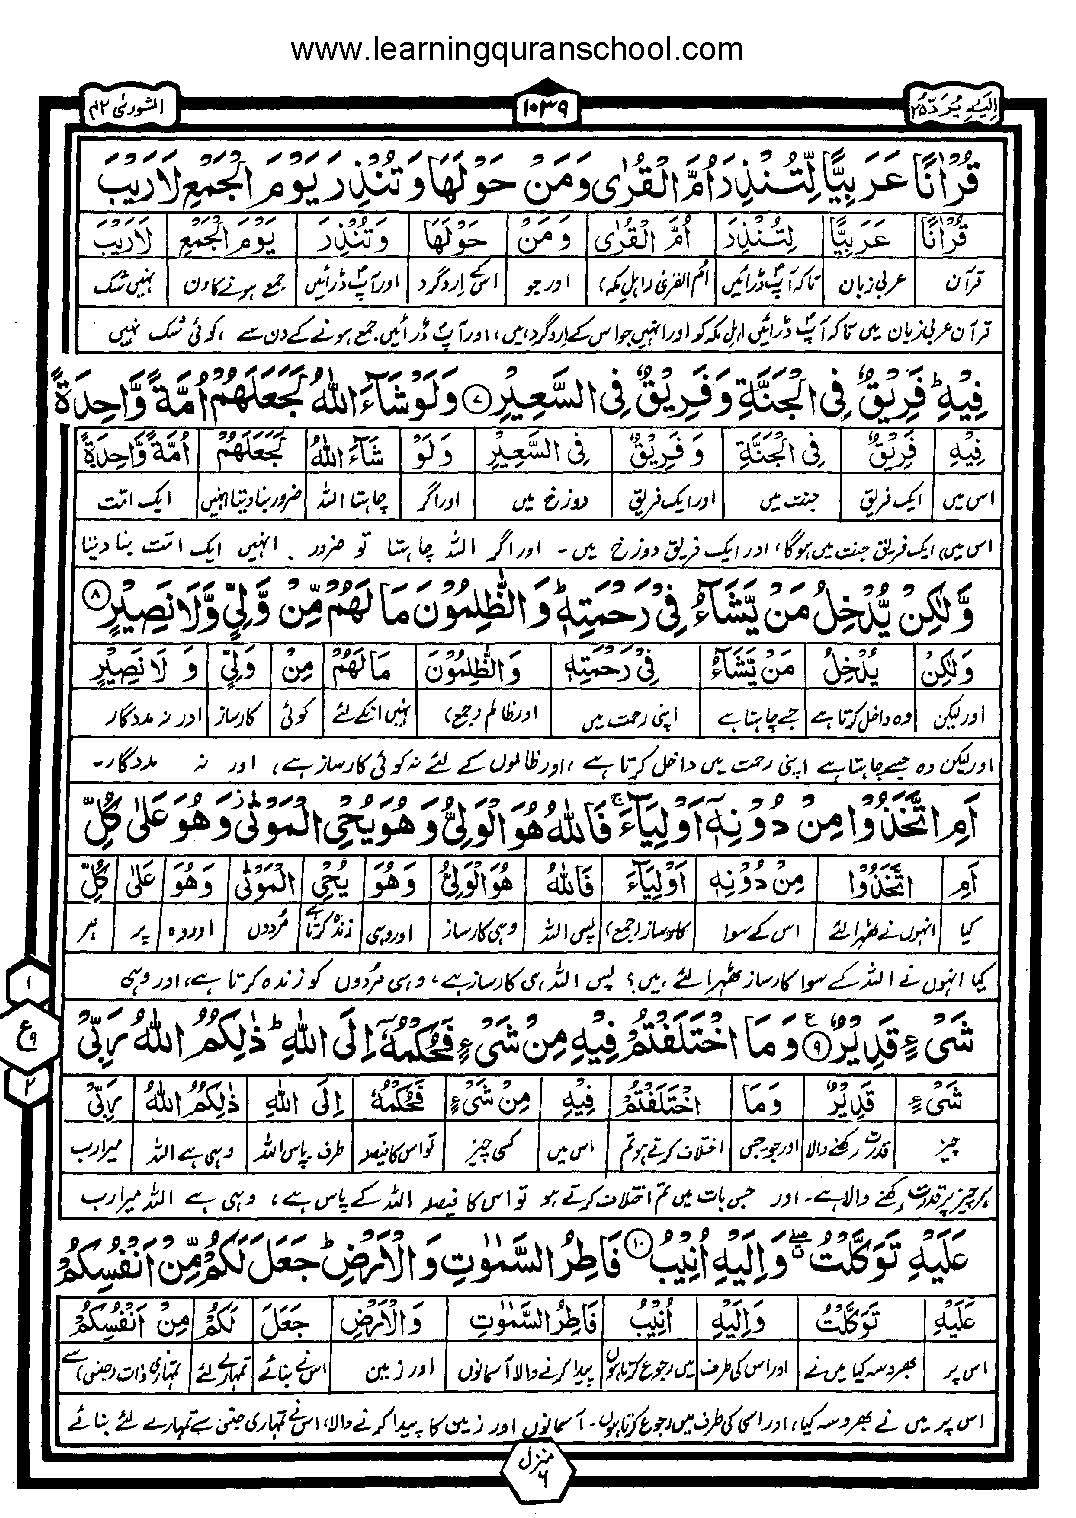 www.learningquranschool.com
اِلَیْہِ یُرَدُّ ۲۵
۱۰۳۹
الشورٰی ۴۲
قُرْاٰنًا عَرَبِيًّا لِّتُنْذِرَ اُمَّ الْقُرٰى وَمَنْ حَوْلَهَا وَتُنْذِرَ يَوْمَ الْجَمْعِ لَا رَيْبَ
قُرْاٰنًا عَرَبِيًّا لِتُنْذِرَ اُمَّ الْقُرٰى وَمَنْ حَوْلَهَا وَتُنْذِرَ يَوْمَ الْجَمْعِ لَا رَيْبَ
قرآن عربی زبان تاکہ آپؐ ڈرائیں اُم القریٰ (اہلِ مکہ) اور جو اسکے ارد گرد اور آپؐ ڈرائیں جمع ہونے کا دن نہیں شک
قرآن عربی زبان میں تاکہ آپؐ ڈرائیں اہلِ مکہ کو اور انہیں جو اس کے ارد گرد ہیں، اور آپؐ ڈرائیں جمع ہونے کے دن سے ، کوئی شک نہیں
فِيْهِ ؕ فَرِيْقٌ فِى الْجَنَّةِ وَفَرِيْقٌ فِى السَّعِيْرِ ۷ وَلَوْ شَآءَ اللّٰهُ لَجَعَلَهُمْ اُمَّةً وَّاحِدَةً
فِيْهِ فَرِيْقٌ فِى الْجَنَّةِ وَفَرِيْقٌ فِى السَّعِيْرِ وَلَوْ شَآءَ اللّٰهُ لَجَعَلَهُمْ اُمَّةً وَّاحِدَةً
اس میں ایک فریق جنت میں اور ایک فریق دوزخ میں اور اگر چاہتا اللہ ضرور بنا دیتا انہیں ایک امت
اس میں، ایک فریق جنت میں ہوگا، اور ایک فریق دوزخ میں ۔ اور اگر اللہ چاہتا تو ضرور انہیں ایک امت بنا دیتا
وَّلٰكِنْ يُّدْخِلُ مَنْ يَّشَآءُ فِىْ رَحْمَتِهٖ ؕ وَالظّٰلِمُوْنَ مَا لَهُمْ مِّنْ وَّلِىٍّ وَّلَا نَصِيْرٍ ۸
وَلٰكِنْ يُدْخِلُ مَنْ يَّشَآءُ فِىْ رَحْمَتِهٖ وَالظّٰلِمُوْنَ مَا لَهُمْ مِنْ وَلِىٍّ وَ لَا نَصِيْرٍ
اور لیکن وہ داخل کرتا ہے جسے چاہتا ہے اپنی رحمت میں اور ظالم (جمع) نہیں انکے لئے کوئی کارساز اور نہ مددگار
اور لیکن وہ جسے چاہتا ہے اپنی رحمت میں داخل کرتا ہے ، اور ظالموں کے لئے نہ کوئی کارساز ہے ، اور نہ مددگار ۔
اَمِ اتَّخَذُوْا مِنْ دُوْنِهٖۤ اَوْلِيَآءَ ۚ فَاللّٰهُ هُوَ الْوَلِىُّ وَهُوَ يُحْىِ الْمَوْتٰى ز وَهُوَ عَلٰى كُلِّ
اَمِ اتَّخَذُوْا مِنْ دُوْنِهٖ اَوْلِيَآءَ فَاللّٰهُ هُوَ الْوَلِىُّ وَهُوَ يُحْىِ الْمَوْتٰى وَهُوَ عَلٰى كُلِّ
کیا انہوں نے ٹھہرا لئے اس کے سوا کارساز (جمع) پس اللہ وہی کارساز اور وہی زندہ کرتا ہے مُردوں اور وہ پر ہر
کیا انہوں نے اللہ کے سوا کارساز ٹھہرا لئے ہیں؟ پس اللہ ہی کارساز ہے، وہی مُردوں کو زندہ کرتا ہے، اور وہی
شَىْءٍ قَدِيْرٌ ۹ ع وَمَا اخْتَلَفْتُمْ فِيْهِ مِنْ شَىْءٍ فَحُكْمُهٗۤ اِلَى اللّٰهِ ؕ ذٰلِكُمُ اللّٰهُ رَبِّىْ
۱
ع ۹
۲
شَىْءٍ قَدِيْرٌ وَمَا اخْتَلَفْتُمْ فِيْهِ مِنْ شَىْءٍ فَحُكْمُهٗ اِلَى اللّٰهِ ذٰلِكُمُ اللّٰهُ رَبِّىْ
چیز قدرت رکھنے والا اور جو جس اختلاف کرتے ہو تم اس میں کسی چیز تو اس کا فیصلہ طرف پاس اللہ وہی ہے اللہ میرا رب
ہر چیز پر قدرت رکھنے والا ہے۔ اور جس بات میں تم اختلاف کرتے ہو تو اس کا فیصلہ اللہ کے پاس ہے، وہی ہے اللہ میرا رب
عَلَيْهِ تَوَكَّلْتُ وَاِلَيْهِ اُنِيْبُ ۱۰ فَاطِرُ السَّمٰوٰتِ وَالْاَرْضِ ؕ جَعَلَ لَكُمْ مِّنْ اَنْفُسِكُمْ
عَلَيْهِ تَوَكَّلْتُ وَاِلَيْهِ اُنِيْبُ فَاطِرُ السَّمٰوٰتِ وَالْاَرْضِ جَعَلَ لَكُمْ مِنْ اَنْفُسِكُمْ
اس پر بھروسہ کیا میں نے اور اس کی طرف میں رجوع کرتا ہوں پیدا کرنے والا آسمانوں اور زمین اس نے بنائے تمہارے لئے تمہاری ذات (جنس) سے
اس پر میں نے بھروسہ کیا، اور اسی کی طرف میں رجوع کرتا ہوں۔ آسمانوں اور زمین کا پیدا کرنے والا، اس نے تمہاری جنس سے تمہارے لئے بنائے
منزل ۶